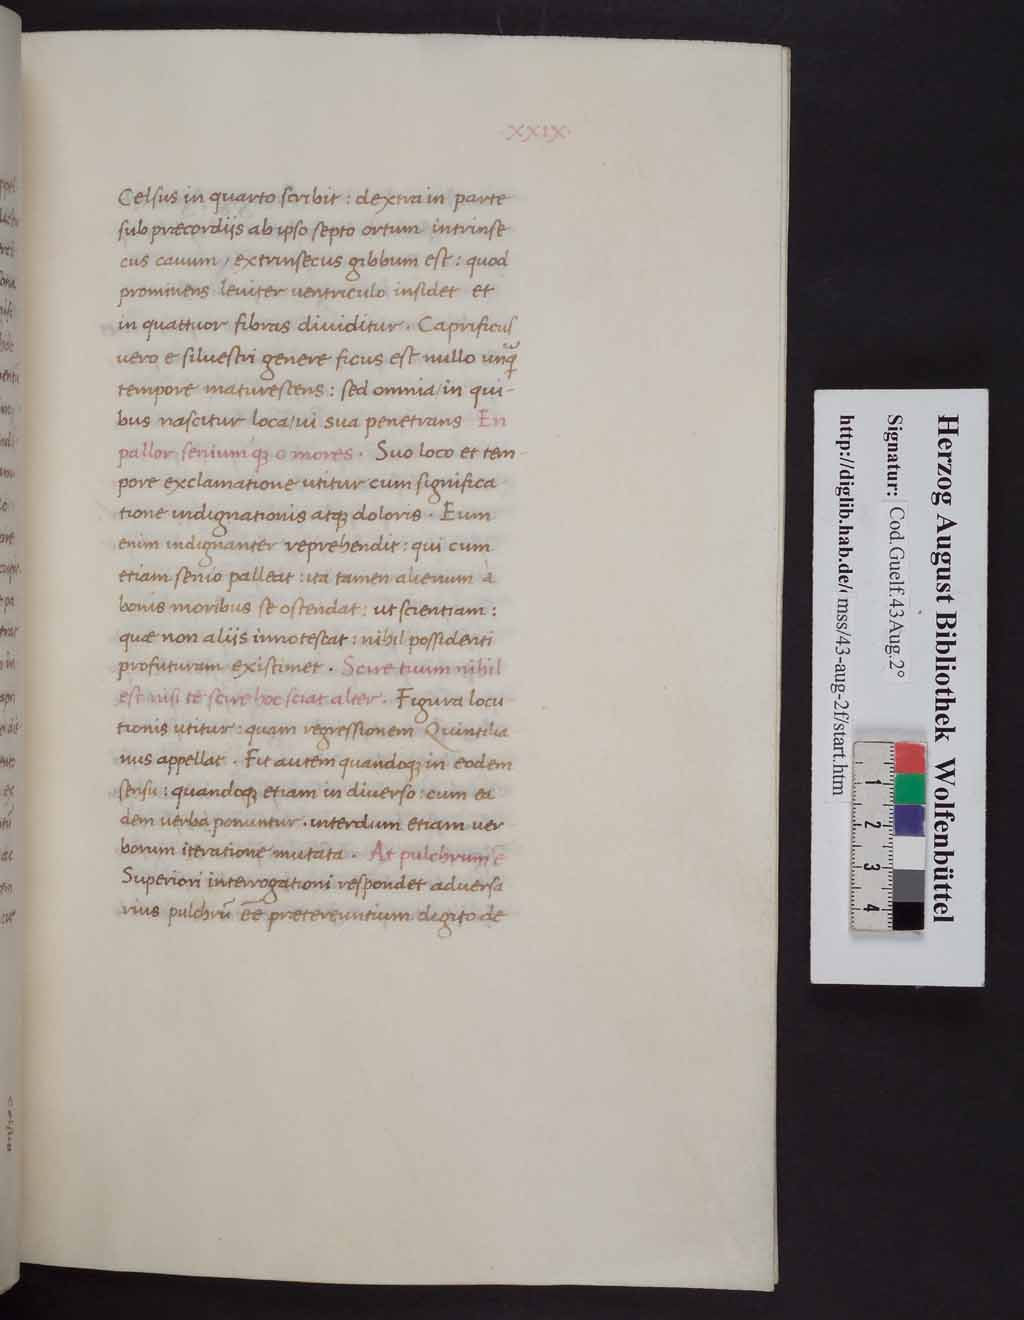 ·XXIX·
Celsus in quarto scribit : dextra in parte
sub præcordijs ab ipso septo ortum intrinse
cus cauum / extrinsecus gibbum est : quod
prominens leuiter uentriculo insidet et
in quattuor fibras diuiditur . Caprificus
uero e siluestri genere ficus est nullo unq̃
tempore maturescens : sed omnia / in qui-
bus nascitur loca / ui sua penetrans En
pallor seniumq; o mores . Suo loco et tem-
pore exclamatione utitur cum significa
tione indignationis atq; doloris . Eum
enim indignanter reprehendit : qui cum
etiam senio palleat : ita tamen alienum à
bonis moribus se ostendat : ut scientiam :
quæ non aliis innotescat : nihil possidenti
profuturam existimet . Scire tuum nihil
est nisi te scire hoc sciat alter . Figura locu
tionis utitur : quam regressionem Quintilia
nus appellat . Fit autem quandoq; in eodem
sensu : quandoq; etiam in diuerso : cum ea
dem uerba ponuntur . interdum etiam uer
borum iteratione mutata . At pulchrum ē
Superiori interrogationi respondet aduersa
rius pulchrū eē̄ prætereuntium digito de
Herzog August Bibliothek Wolfenbüttel
Signatur: Cod.Guelf.43 Aug.2°
http://diglib.hab.de/ mss/43-aug-2f/start.htm
1
2
3
4